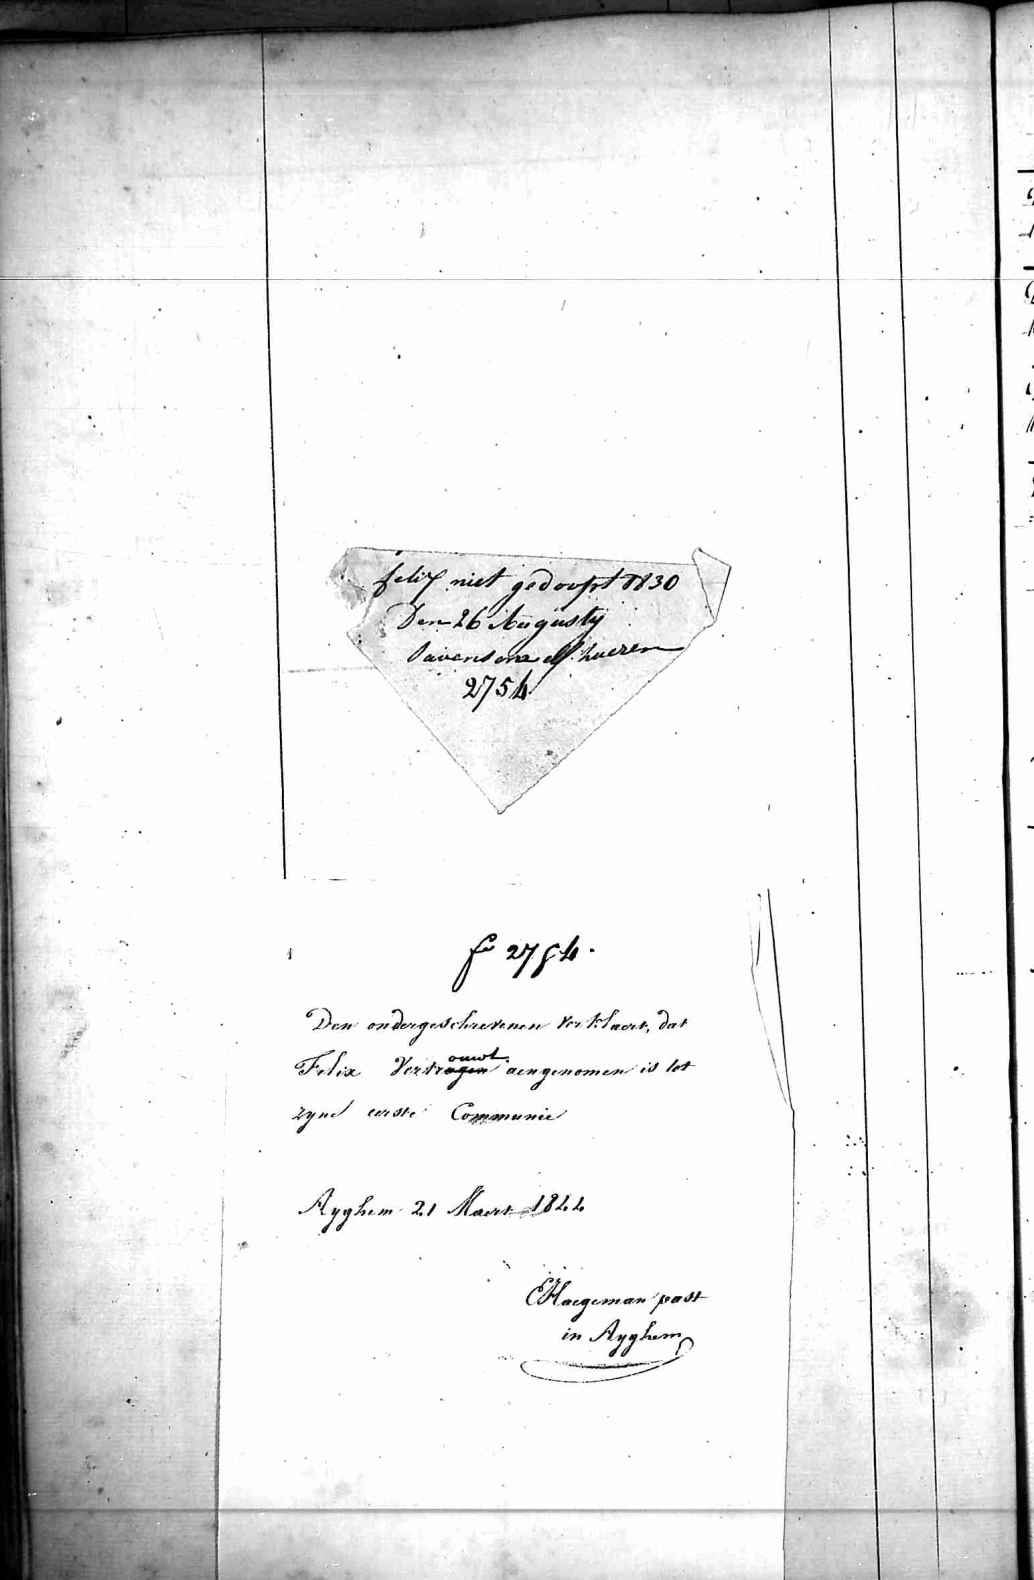 felix niet gedoopt 1830
Den 26 Augusty
savens one elf hueren
2754
fo 2754.
Den ondergeschrevenen verklaert, dat
Felix Vertrouwt aengenomen is tot
zyne eerste Communie
Ayghem 21 Maert 1844
C Haegeman past
in Ayghem